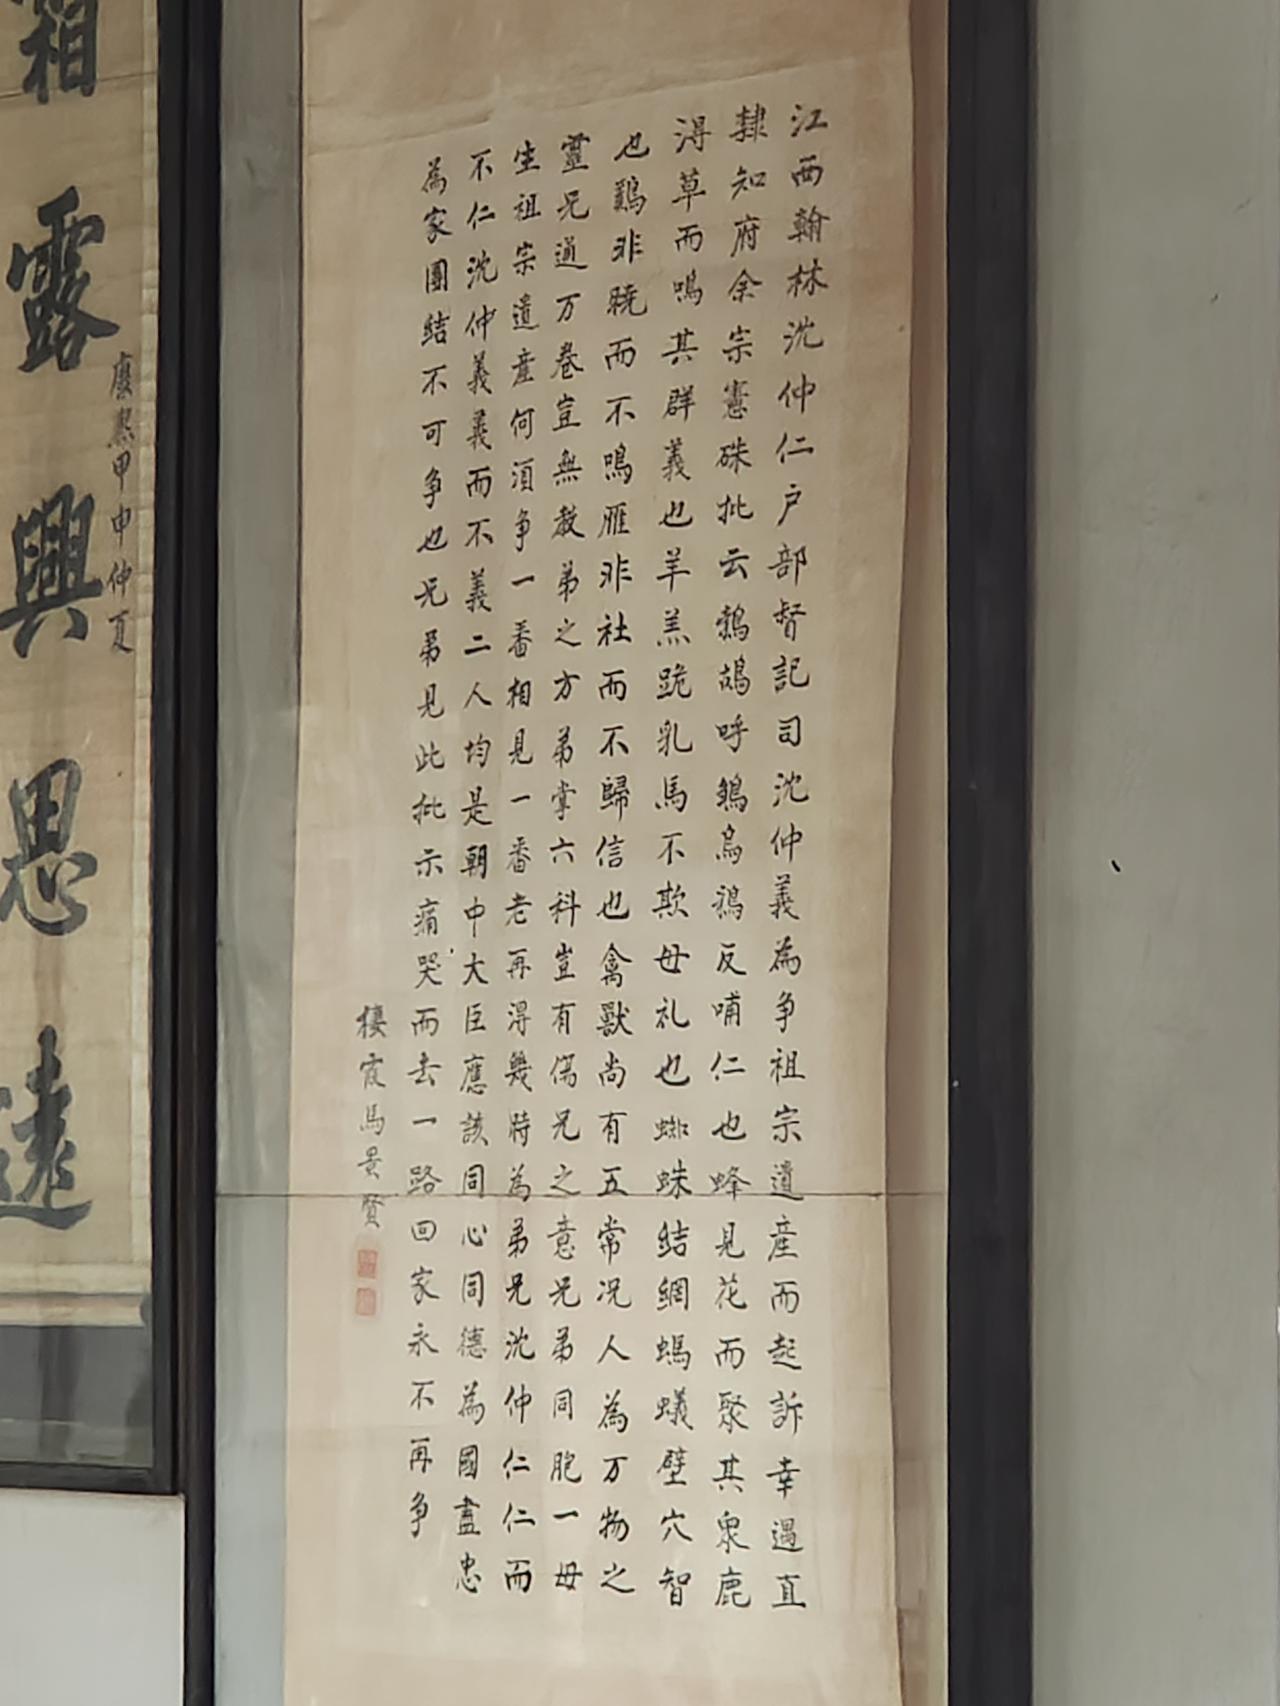 江西翰林沈仲仁户部督記司沈仲義為争祖宗遺産而起訴幸遇直
隸知府余宗憲硃批云鵓鴣呼鶵烏鴉反哺仁也蜂見花而聚其衆鹿
淂草而鳴其群義也羊羔跪乳馬不欺母礼也蜘蛛結網螞蟻壁穴智
也鷄非曉而不鳴雁非社而不歸信也禽獸尚有五常况人為万物之
靈兄通万卷豈無教弟之方弟掌六科豈有傷兄之意兄弟同胞一母
生祖宗遺産何須争一番相見一番老再淂幾時為弟兄沈仲仁仁而
不仁沈仲義義而不義二人均是朝中大臣應該同心同德為國盡忠
為家團結不可争也兄弟見此批示痛哭而去一路回家永不再争
棲霞馬景賢
康熙甲申仲夏
霜露興思遠